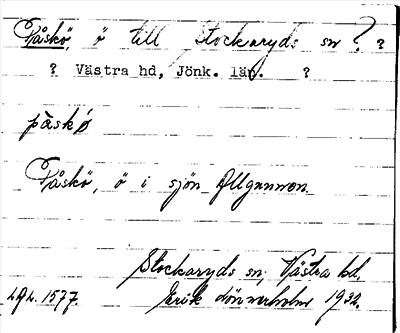 Påskö, ö till Stockaryds sn ? ?
? Västra hd, Jönk. län. ?
påskö
Påskö, ö i sjön Allgunnen.
Stockaryds sn, Västra hd,
1932.